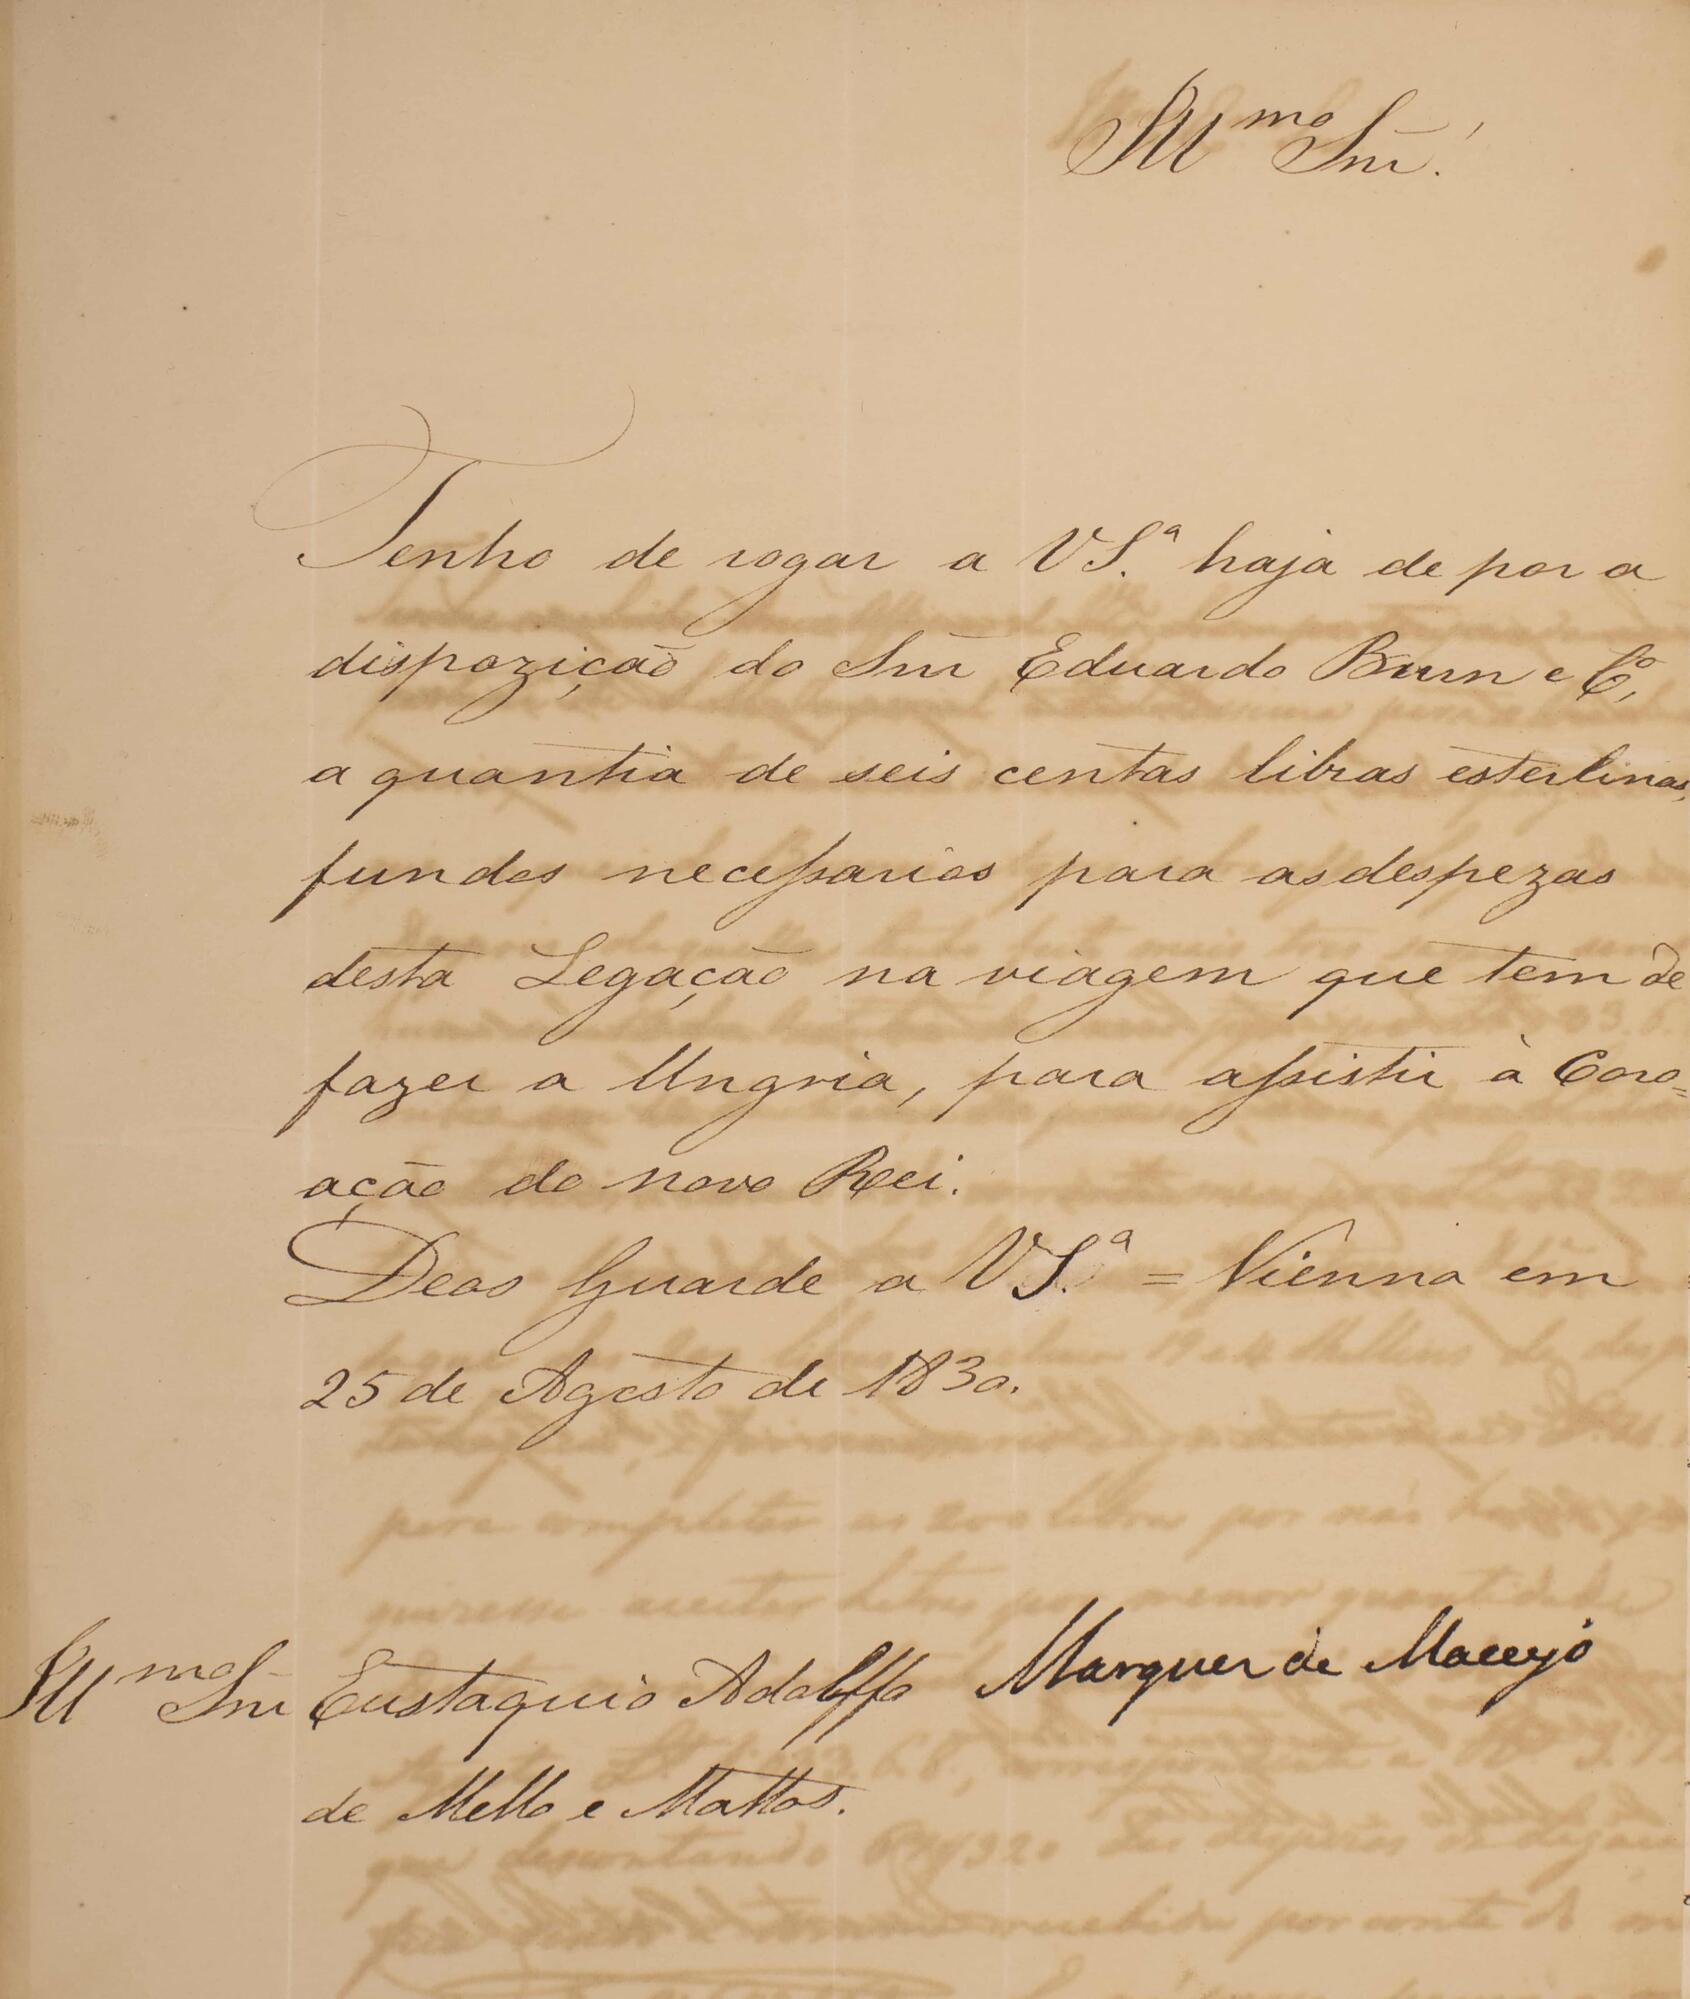 Ill.mo Snr.
Tenho de rogar a VS.ª haja de por a
dispozição do Snr Eduardo Brun e C.º,
a quantia de seis centas libras esterlinas,
fundos necessarios para as despezas
desta Legação na viagem que tem de
fazer a Ungria, para assistir à Coro=
ação do novo Rei.
Deos Guarde a VS.ª = Vienna em
25 de Agosto de 1830.
Marquez de Maceyó
Ill.mo Snr Eustaquio Adolffo
de Mello e Mattos.